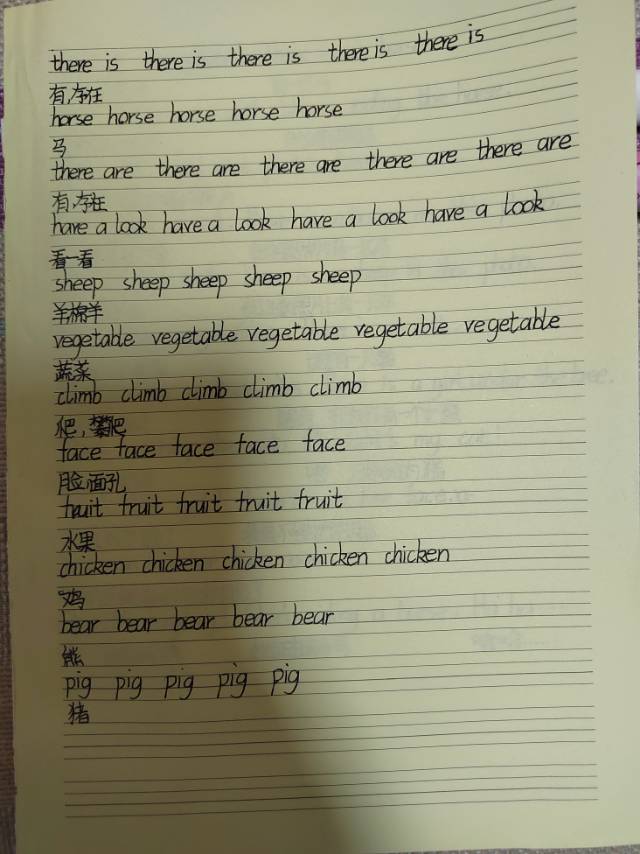 there is there is there is there is there is
有,存在
horse horse horse horse horse
马
there are there are there are there are there are
有,存在
have a look have a look have a look have a look
看一看
sheep sheep sheep sheep sheep
羊,绵羊
vegetable vegetable vegetable vegetable vegetable
蔬菜
climb climb climb climb climb
爬,攀爬
face face face face face
脸,面孔
fruit fruit fruit fruit fruit
水果
chicken chicken chicken chicken chicken
鸡
bear bear bear bear bear
熊
pig pig pig pig pig
猪